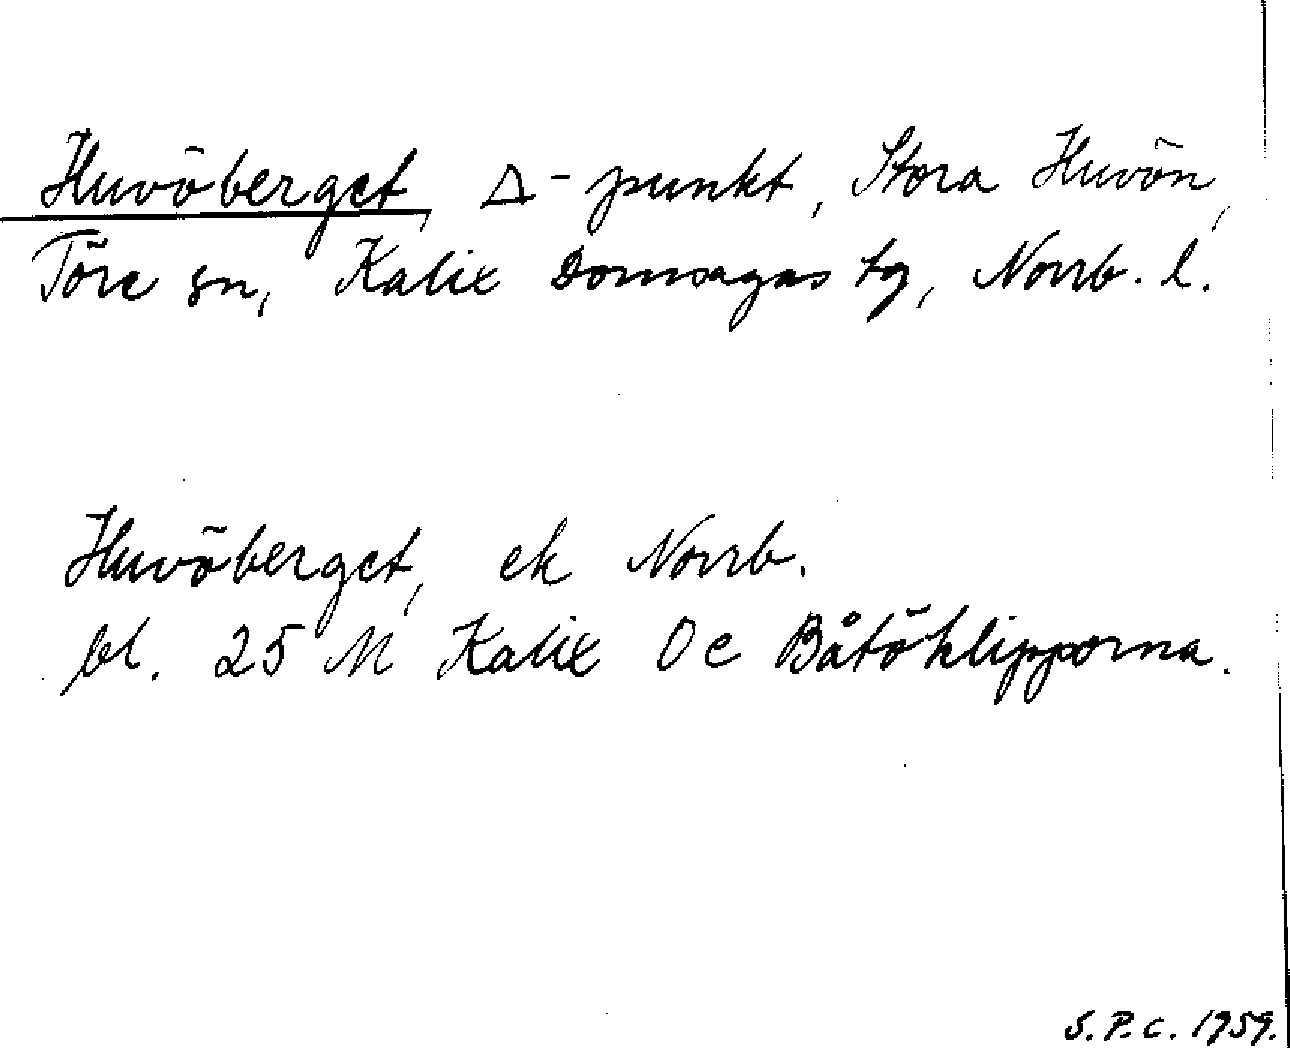 Huvöberget, Δ-punkt, Stora Huvön,
Töre sn, Kalix Domsagas tg, Norrb. l.
Huvöberget, ek Norrb.
bl. 25 M Kalix Oc Båtöklipporna.
S.P.C. 1959.